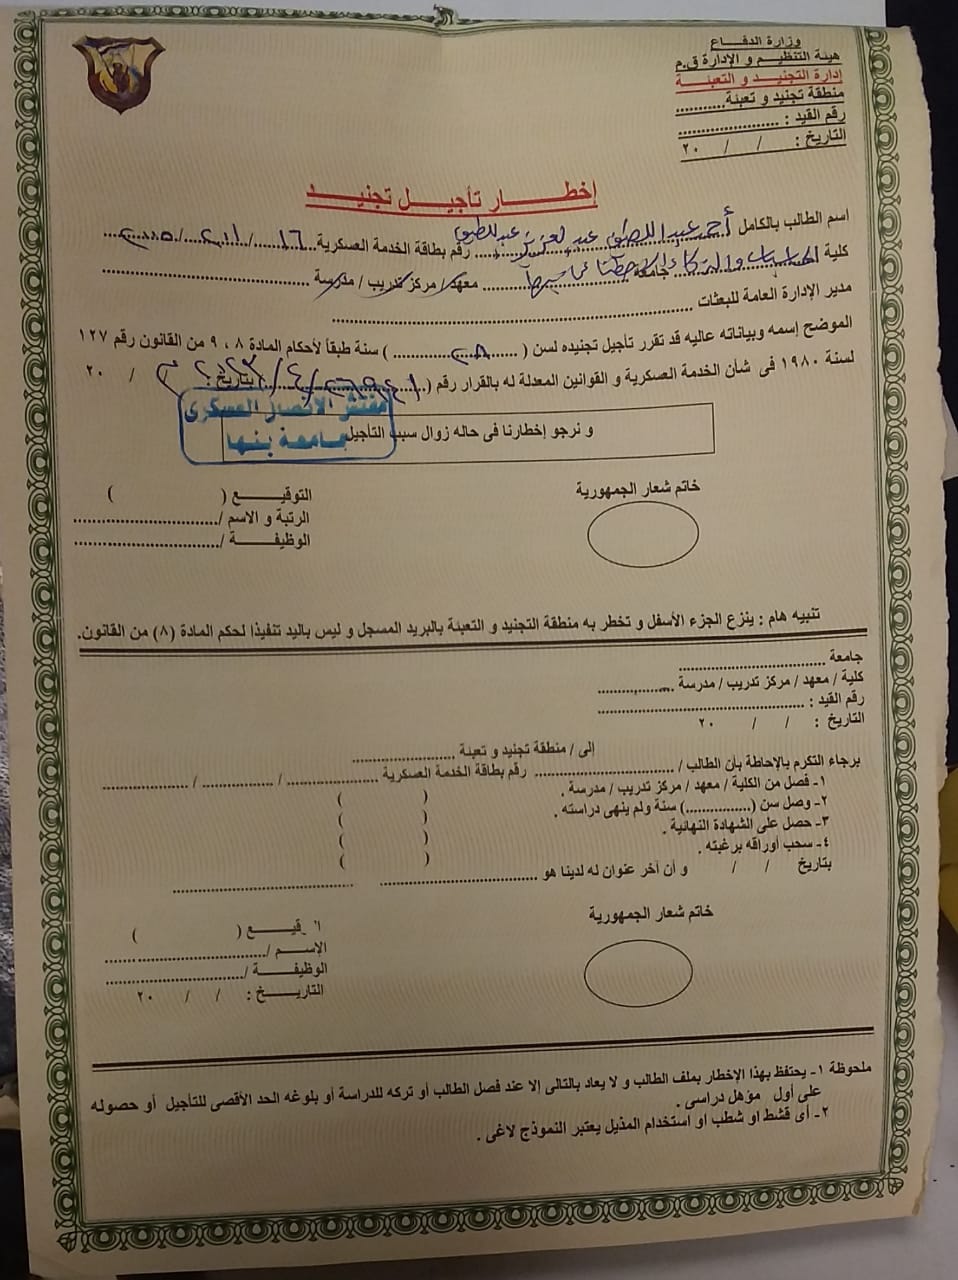 وزارة الدفـــاع
هيئة التنظيم و الإدارة ق.م
إدارة التجنيد و التعبئة
منطقة تجنيد و تعبئة...........
رقم القيد : ......................
التاريخ : / / ٢٠
إخطـــــار تأجيـــل تجنيـــــد
اسم الطالب بالكامل أحمد عبد اللطيف عبد العزيز عبد اللطيف
رقم بطاقة الخدمة العسكرية ١٦ /
كلية الحاسبات و جامعة معهد/ مركز تدريب / مدرسة ......................
مدير الإدارة العامة للبعثات ......................
الموضح إسمه وبياناته عاليه قد تقرر تأجيل تجنيده لسن ( ٢٨ ) سنة طبقاً لأحكام المادة ٨ ، ٩ من القانون رقم ١٢٧
لسنة ١٩٨٠ فى شأن الخدمة العسكرية و القوانين المعدلة له بالقرار رقم ( بتاريخ : / ٢٠
مفتش الاتصال العسكرى
بجامعة بنها
و نرجو إخطارنا فى حاله زوال سبب التأجيل
خاتم شعار الجمهورية
التوقيـــــع ( )
الرتبة و الاسم /......................
الوظيفــــــة /......................
تنبيه هام : ينزع الجزء الأسفل و تخطر به منطقة التجنيد و التعبئة بالبريد المسجل و ليس باليد تنفيذا لحكم المادة (٨) من القانون.
جامعة ......................
كلية / معهد / مركز تدريب / مدرسة ..............
رقم القيد : ......................
التاريخ : / / ٢٠
إلى / منطقة تجنيد و تعبئة ......................
برجاء التكرم بالإحاطة بأن الطالب / ...................... رقم بطاقة الخدمة العسكرية .............. / .............. / ..............
١- فصل من الكلية / معهد / مركز تدريب / مدرسة . ( )
٢- وصل سن (...............) سنة ولم ينهى دراسته . ( )
٣- حصل على الشهادة النهائية . ( )
٤- سحب أوراقه برغبته . ( )
بتاريخ / / و أن أخر عنوان له لدينا هو ......................
خاتم شعار الجمهورية
قيـــع ( )
الإســـم /......................
الوظيفـــــة /......................
التاريـــــخ : / / ٢٠
ملحوظة ١- يحتفظ بهذا الإخطار بملف الطالب و لا يعاد بالتالى إلا عند فصل الطالب أو تركه للدراسة أو بلوغه الحد الأقصى للتأجيل أو حصوله
على أول مؤهل دراسى .
٢- أى قشط او شطب او استخدام المذيل يعتبر النموذج لاغى .